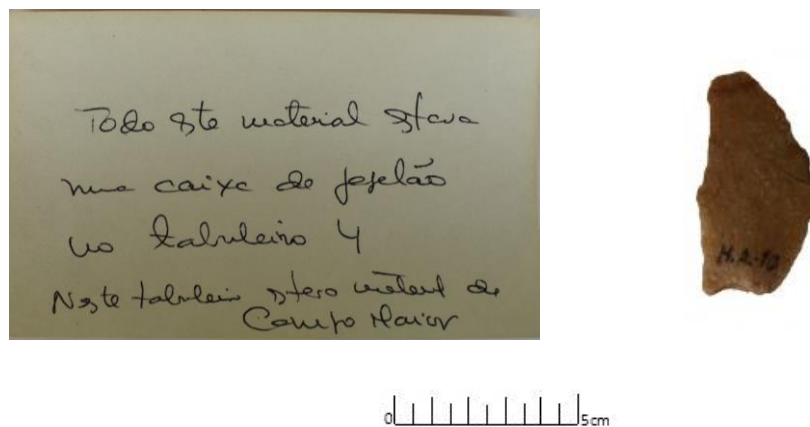 Todo este material estava
numa caixa de papelão
no tabuleiro 4
Neste tabuleiro material de
Campo Maior
H.2.10
0 5cm